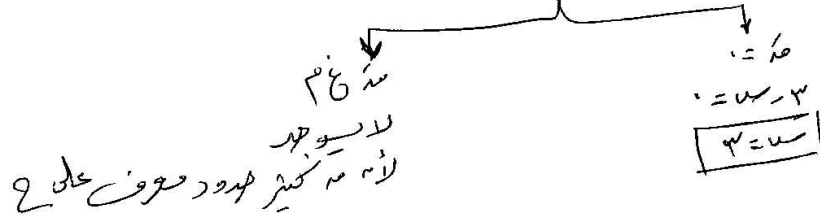 قَ = ٠
٣ - س = ٠
س = ٣
قَ غ م
لا يوجد
لأنه قَ كثير حدود معرف على ح